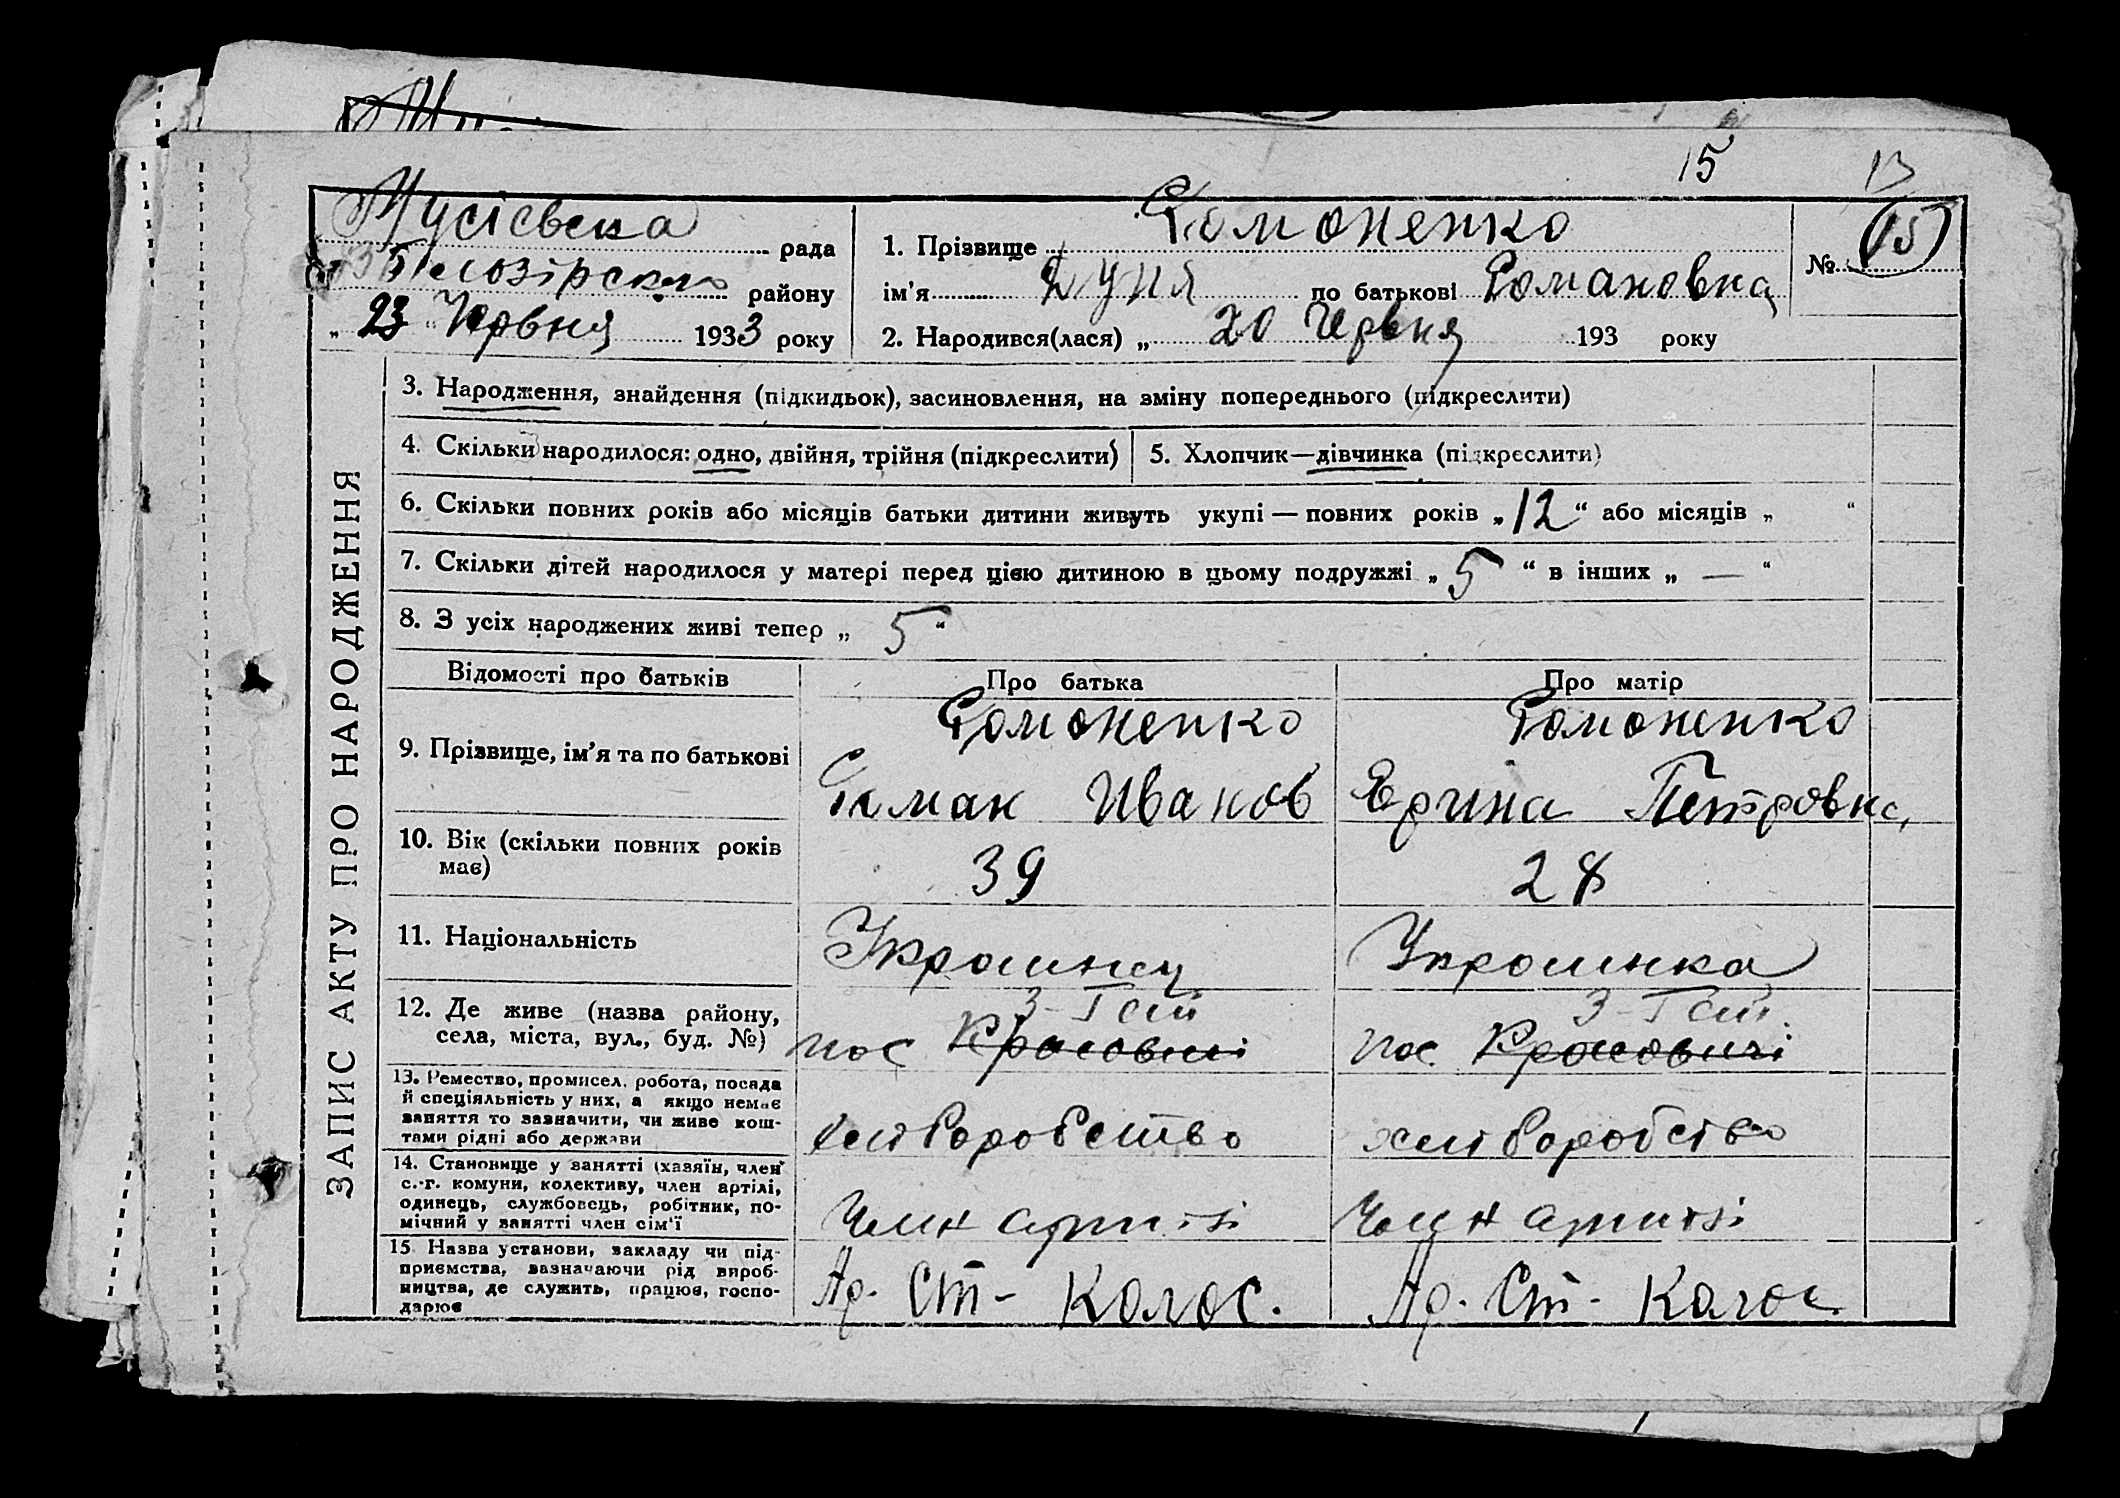 15 13
Мусієвська рада
Білозірского району
„ 23 “ Червня 1933 року
1. Прізвище Гомоненко
ім'я Дуня по батькові Романовна
2. Народився(лася) „ 20 Червня 193 року
№ 15
ЗАПИС АКТУ ПРО НАРОДЖЕННЯ
3. Народження, знайдення (підкидьок), засиновлення, на зміну попереднього (підкреслити)
4. Скільки народилося: одно, двійня, трійня (підкреслити)
5. Хлопчик—дівчинка (підкреслити)
6. Скільки повних років або місяців батьки дитини живуть укупі — повних років „ 12 “ або місяців „ “
7. Скільки дітей народилося у матері перед цією дитиною в цьому подружжі „ 5 “ в інших „ — “
8. З усіх народжених живі тепер „ 5 “
Відомості про батьків Про батька Про матір
9. Прізвище, ім'я та по батькові
Гомоненко Гомоненко
Роман Иванов Ярина Петровна
10. Вік (скільки повних років
має)
39 28
11. Національність
Украинец Украинка
12. Де живе (назва району,
села, міста, вул., буд. №)
пос пос
13. Ремество, промисел, робота, посада
й спеціяльність у них, а якщо немає
заняття то зазначити, чи живе кош-
тами рідні або держави
хлiборобство хлiборобство
14. Становище у занятті (хазяїн, член
с.-г. комуни, колективу, член артілі,
одинець, службовець, робітник, по-
мічний у занятті член сім'ї
Член артилі Член артилі
15. Назва установи, закладу чи під-
приємства, вазначаючи рід вироб-
ництва, де служить, працює, госпо-
дарює
Ар. Ст- Колос. Ар. Ст- Колос.